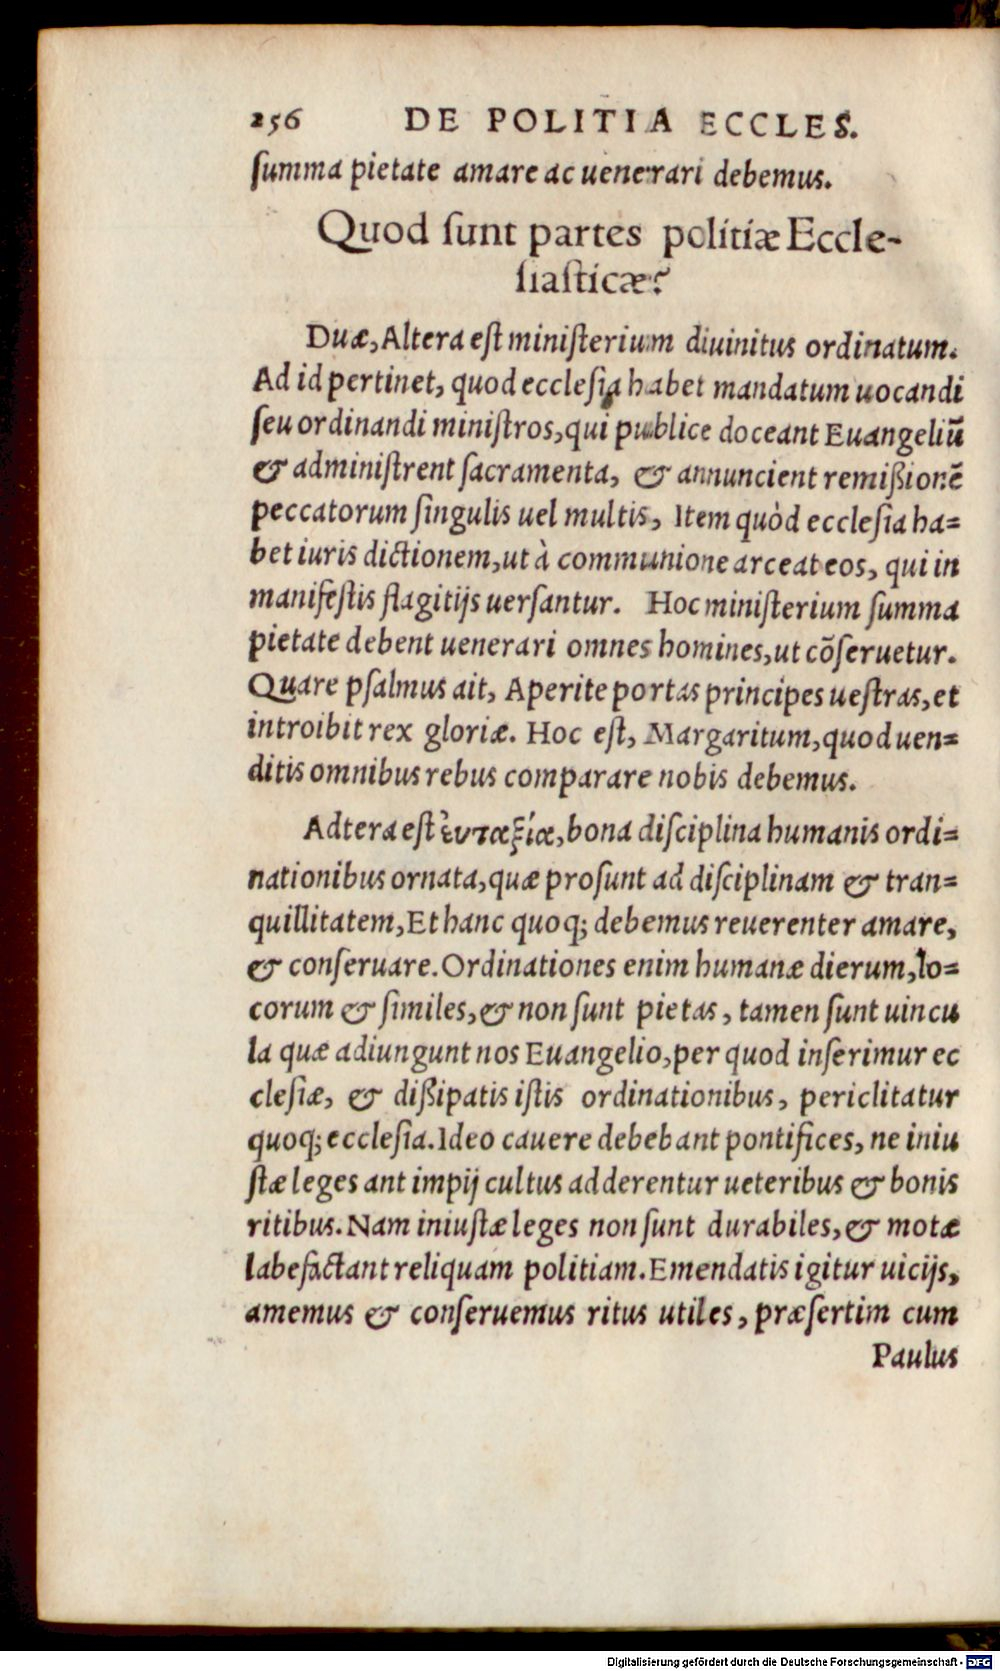 256 DE POLITIA ECCLES.
ſumma pietate amare ac uenerari debemus.
Quod ſunt partes politiæ Eccle-
ſiaſticæ?
Duæ, Altera eſt miniſterium diuinitus ordinatum.
Ad id pertinet, quod eccleſia habet mandatum uocandi
ſeu ordinandi miniſtros, qui publice doceant Euangeliū
& adminiſtrent ſacramenta, & annuncient remißionē
peccatorum ſingulis uel multis, Item quòd eccleſia ha=
bet iuris dictionem, ut à communione arceat eos, qui in
manifeſtis flagitijs uerſantur. Hoc miniſterium ſumma
pietate debent uenerari omnes homines, ut cōſeruetur.
Quare pſalmus ait, Aperite portas principes ueſtras, et
introibit rex gloriæ. Hoc eſt, Margaritum, quod uen=
ditis omnibus rebus comparare nobis debemus.
Adtera eſt ἐυταξία, bona diſciplina humanis ordi=
nationibus ornata, quæ proſunt ad diſciplinam & tran=
quillitatem, Et hanc quoq; debemus reuerenter amare,
& conſeruare. Ordinationes enim humanæ dierum, lo=
corum & ſimiles, & non ſunt pietas, tamen ſunt uincu
la quæ adiungunt nos Euangelio, per quod inſerimur ec
cleſiæ, & dißipatis iſtis ordinationibus, periclitatur
quoq; eccleſia. Ideo cauere debebant pontifices, ne iniu
ſtæ leges ant impij cultus adderentur ueteribus & bonis
ritibus. Nam iniuſtæ leges non ſunt durabiles, & motæ
labefactant reliquam politiam. Emendatis igitur uicijs,
amemus & conſeruemus ritus utiles, præſertim cum
Paulus
Digitalisierung gefördert durch die Deutsche Forschungsgemeinschaft - DFG